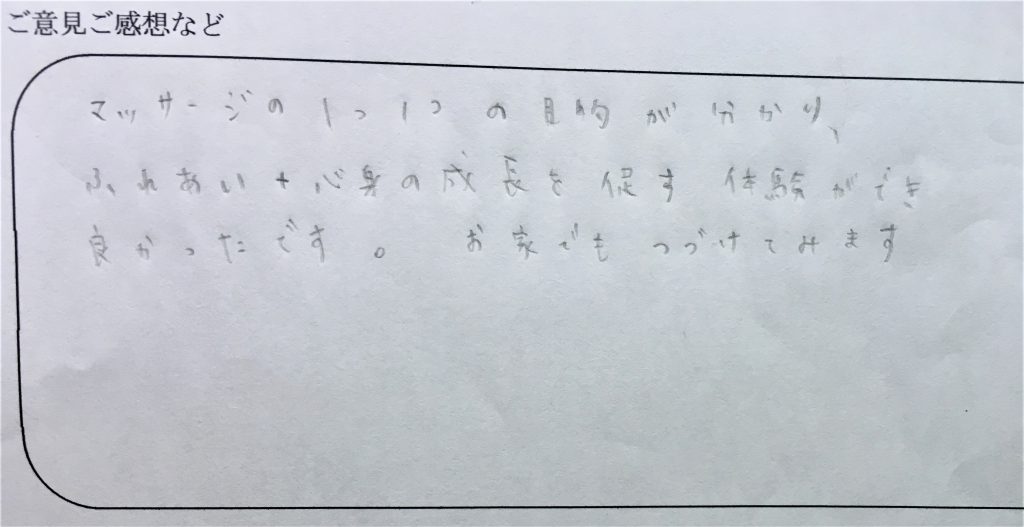 ご意見ご感想など
マッサージの1つ1つの目的が分かり、
ふれあい+心身の成長を促す体験ができ
良かったです。 お家でもつづけてみます